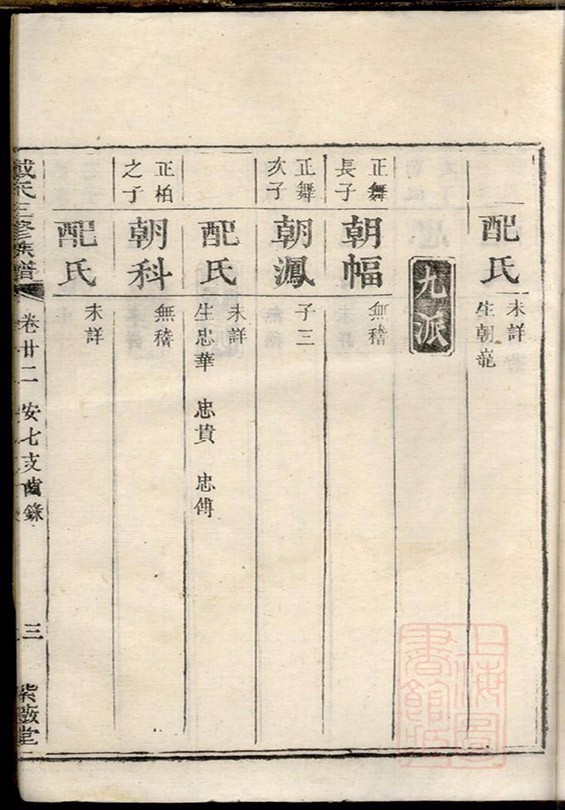 配氏
未詳
生朝竜
九派
正舞
長子
朝幅
無稽
正舞
次子
朝鳳
子三
配氏
未詳
生忠華 忠貴 忠傅
正柏
之子
朝科
無稽
配氏
未詳
戴氏三修族譜
卷廿二 安七支齒錄
三
紫薇堂
上海圖
書館藏